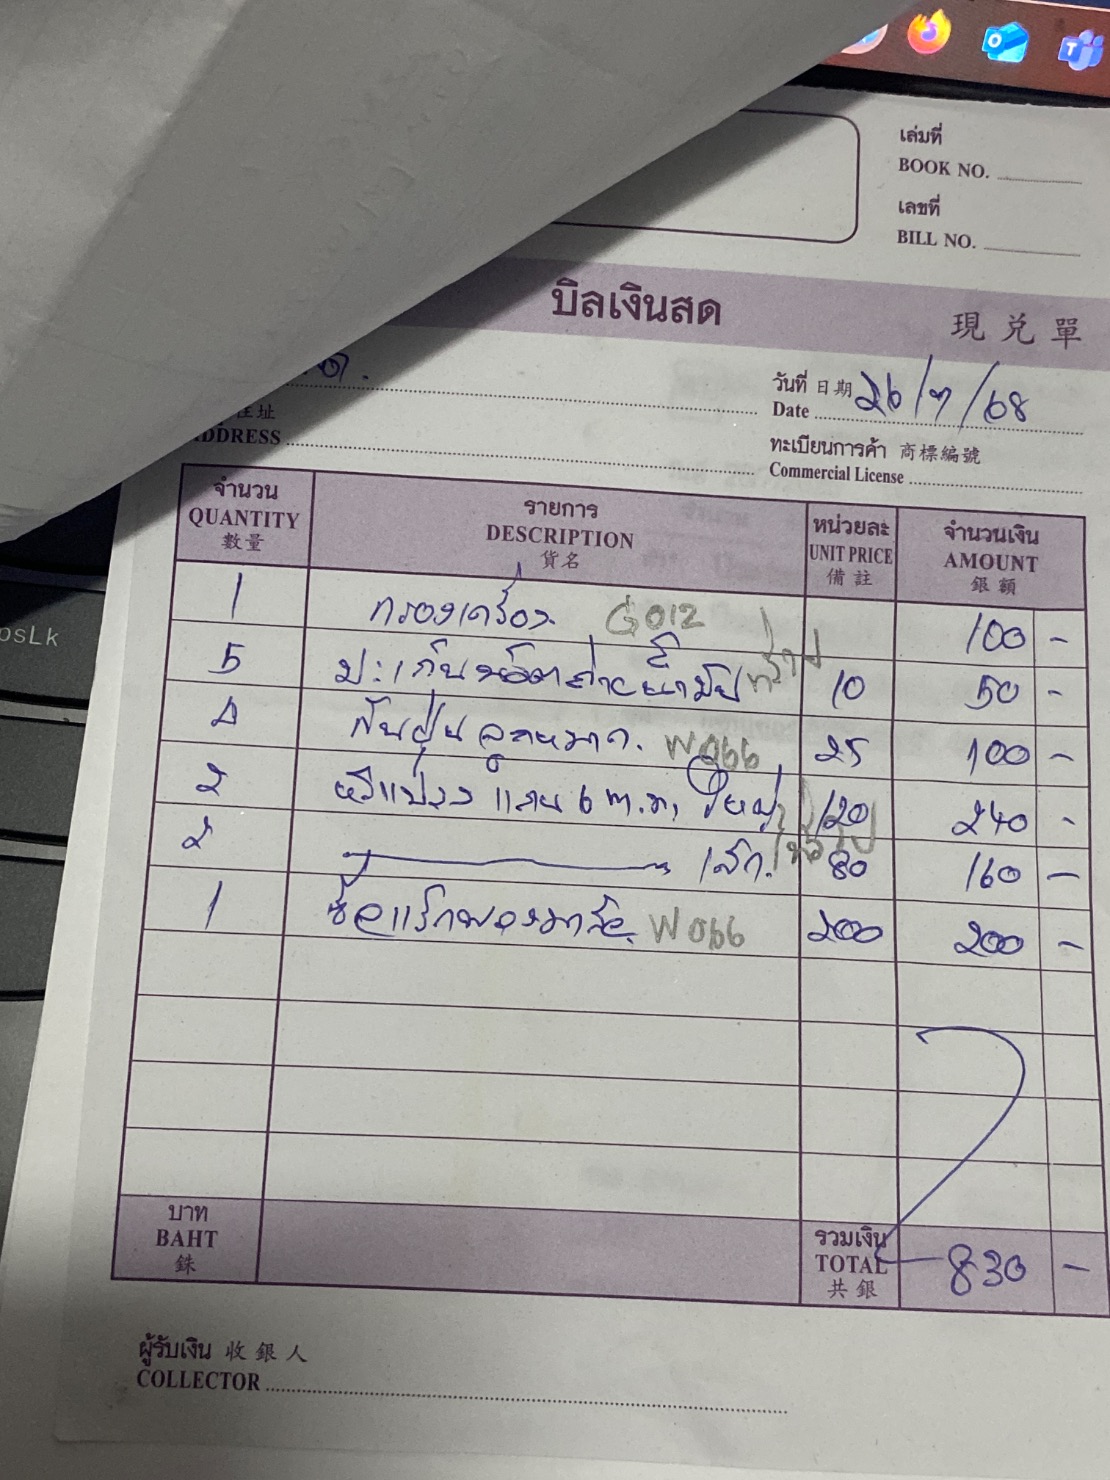 psLk
เล่มที่
BOOK NO.
เลขที่
BILL NO.
บิลเงินสด 現兌單
วันที่ 日期 26/7/68
Date
住址
ADDRESS
ทะเบียนการค้า 商標編號
Commercial License
จำนวน รายการ หน่วยละ จำนวนเงิน
QUANTITY DESCRIPTION UNIT PRICE AMOUNT
數量 貨名 備註 銀額
1 กรองเครื่อง G012 100 -
5 ปะเก็นน็อตถ่ายน้ำมัน 10 50 -
4 กันฝุ่นลูกหมาก W066 25 100 -
2 หวีแปรง แกน 6 ท.ท, ใหญ่ 120 240 -
2 เล็ก. 80 160 -
1 W066 200 200 -
บาท รวมเงิน
BAHT TOTAL 830 -
銖 共銀
ผู้รับเงิน 收銀人
COLLECTOR